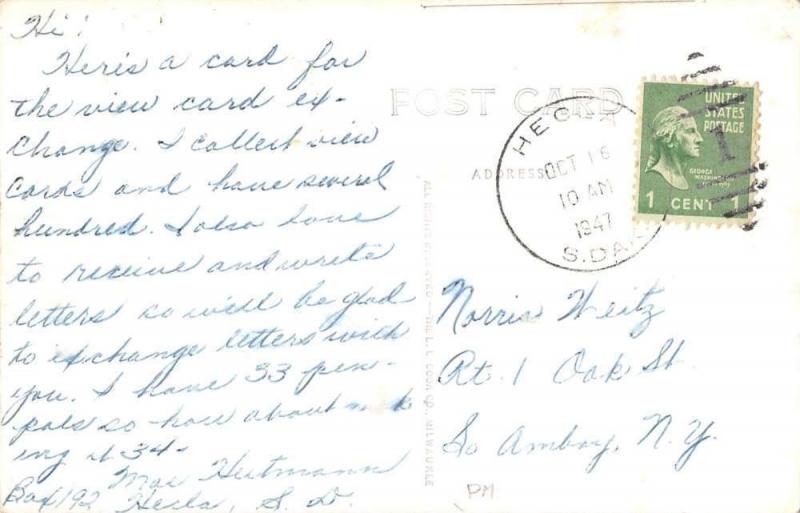 Hi!
Here's a card for
the view card ex-
change. I collect view
cards and have several
hundred. I also love
to receive and write
letters so will be glad
to exchange letters with
you. I have 33 pen-
pals so how about mak
ing it 34-
Mae Heitmann
Box 192 Hecla, S. D.
POST CARD
ADDRESS
HECLA
OCT 16
10 AM
1947
S. DAK.
UNITED
STATES
POSTAGE
1
GEORGE
WASHINGTON
1 CENT 1
ALL RIGHTS RESERVED - THE L. L. COOK CO., MILWAUKEE
Norris Weitz
Rt. 1 Oak St.
So Amboy, N.Y.
PM